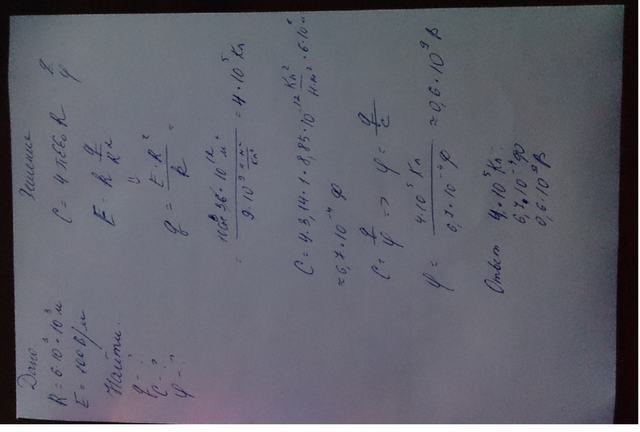 Дано
R = 6·10³·10³ м
E = 100 В/м
Найти:
q - ?
C - ?
φ - ?
Решение
C = 4πεε₀R
q
φ
E = k q/R²
q = E·R²/k =
= 100·36·10¹² м² / 9·10⁹ = 4·10⁵ Кл
C = 4·3,14·1·8,85·10⁻¹² Кл²/Н·м² · 6·10⁶
≈ 6,7·10⁻⁴ Ф
C = q/φ => φ = q/C
φ = 4·10⁵ Кл / 6,7·10⁻⁴ Ф ≈ 0,6·10⁹ В
Ответ: 4·10⁵ Кл
6,7·10⁻⁴ Ф
0,6·10⁹ В